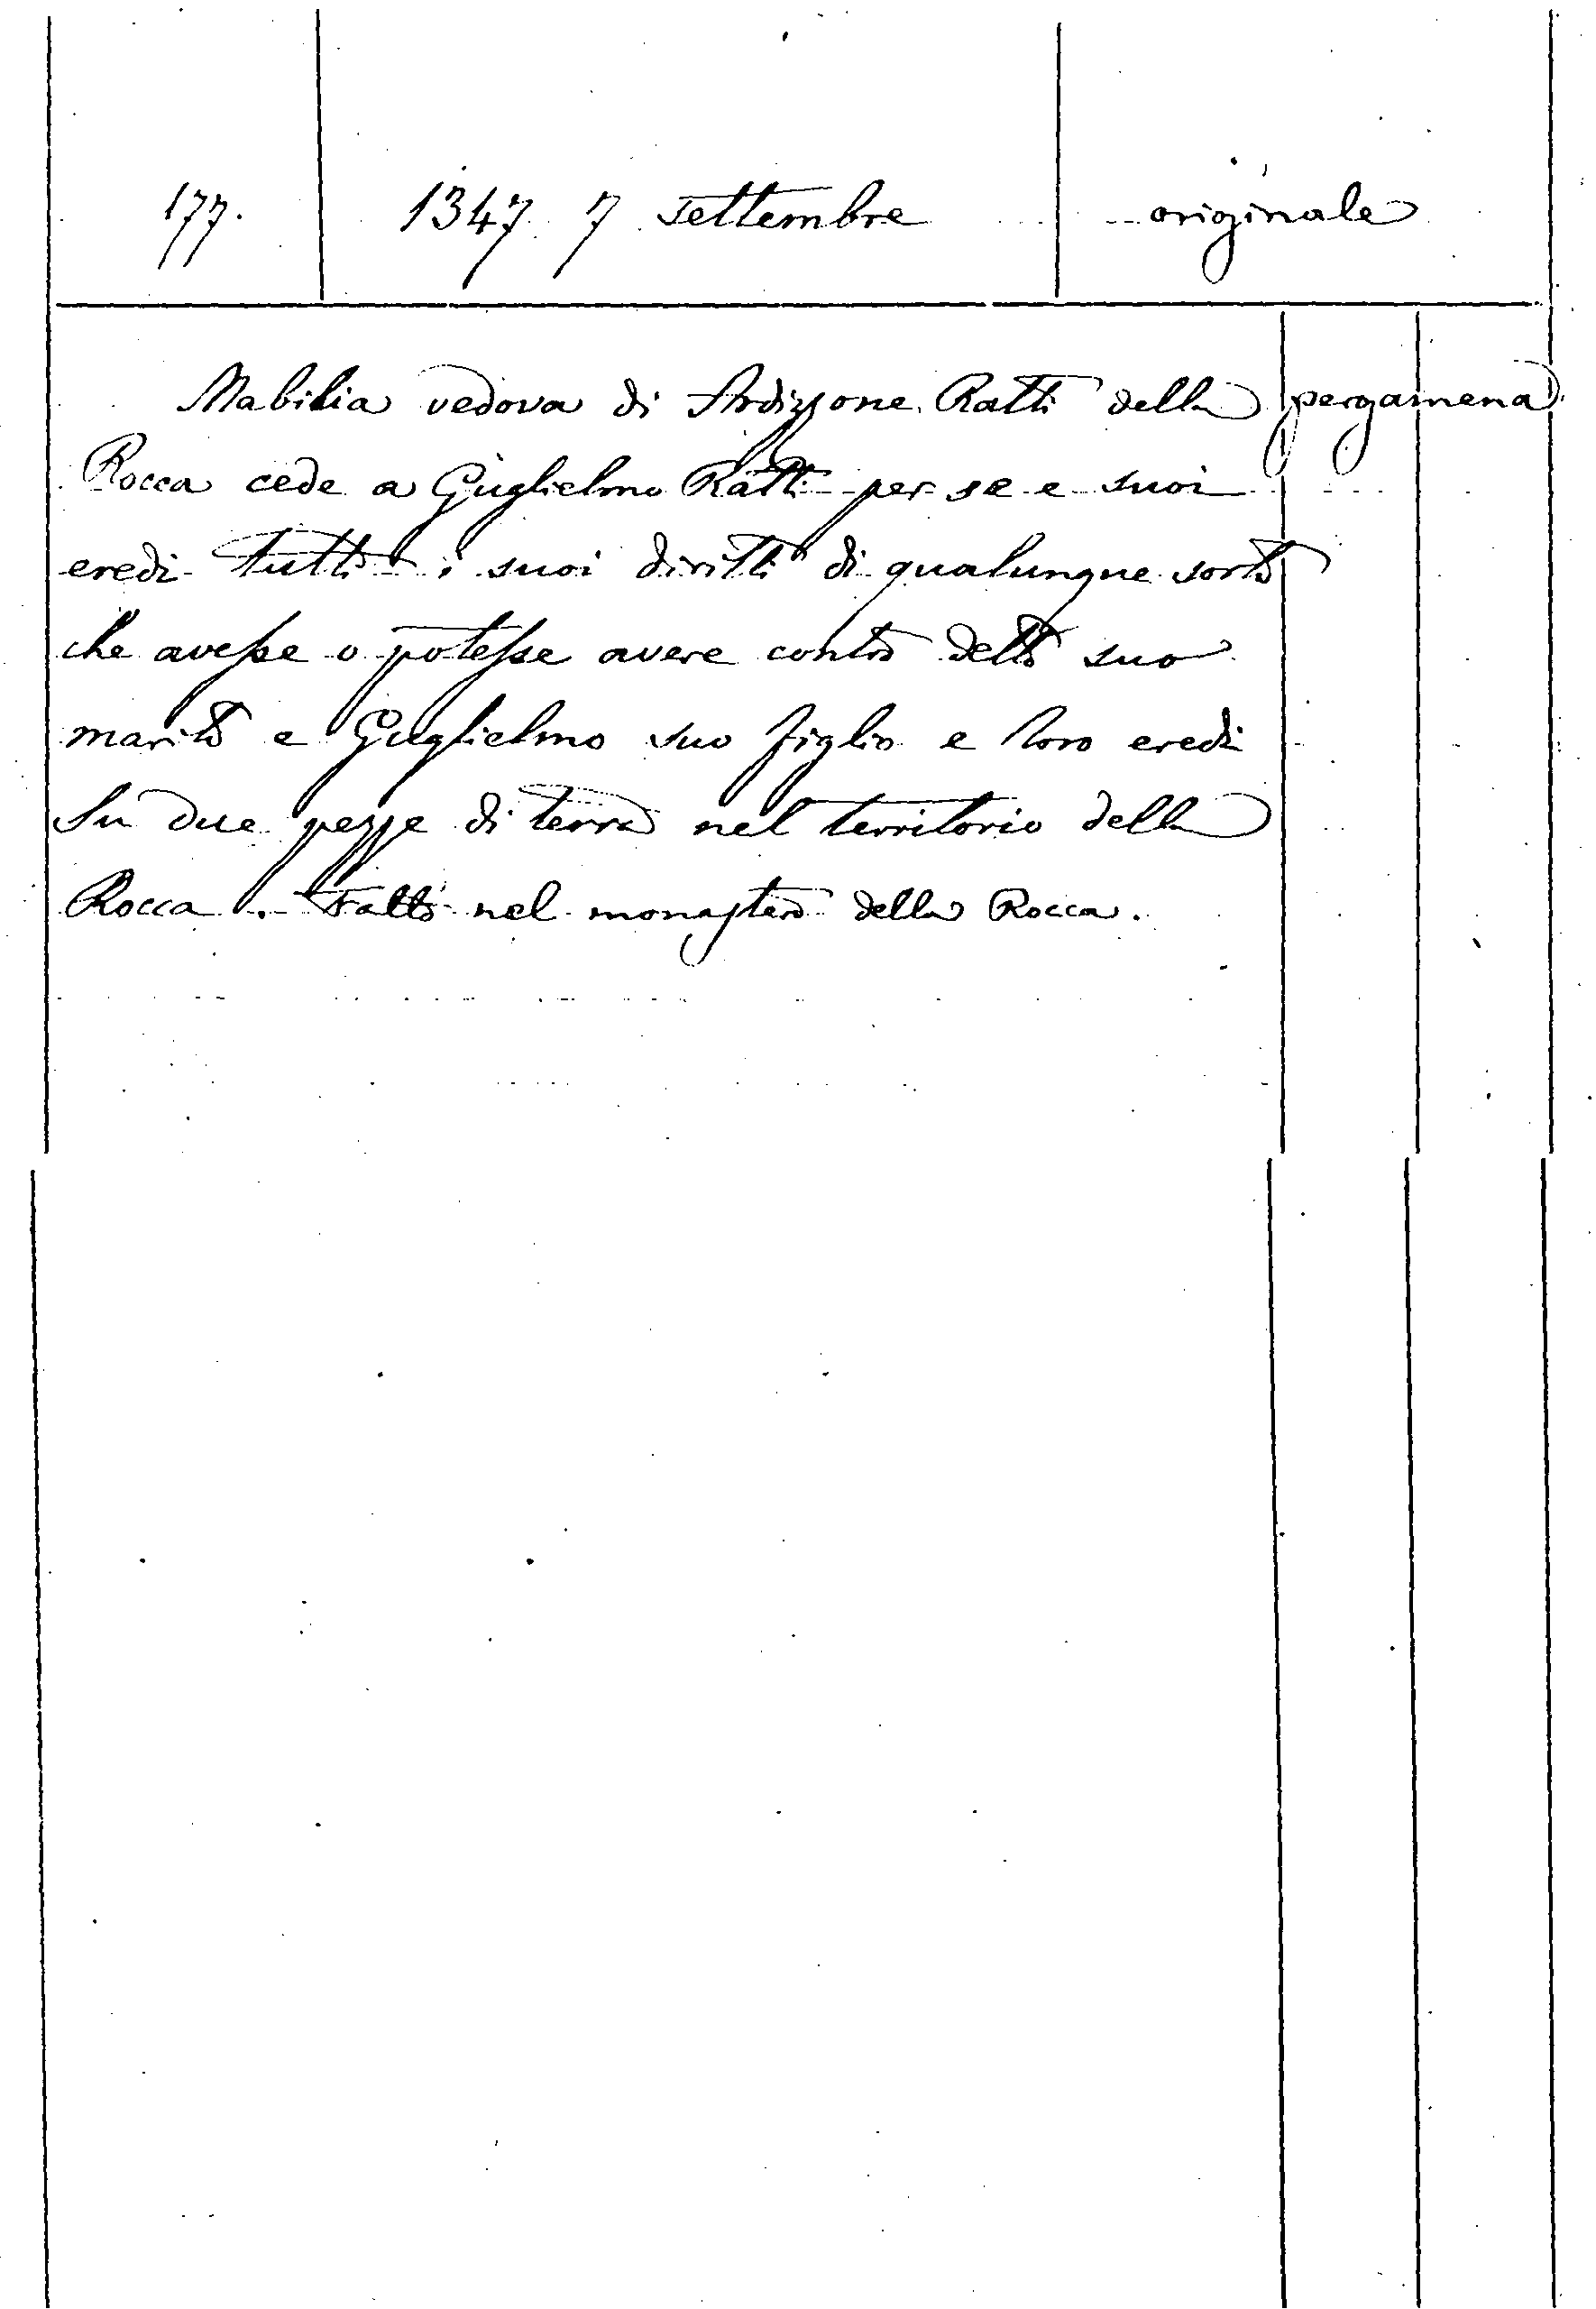 177.
1347 7 settembre
originale
Mabilia vedova di Ardizzone Ratti della
pergamena
Rocca cede a Guglielmo Ratti per se e suoi
eredi tutti i suoi diritti di qualunque sorta
che avesse o potesse avere contro detto suo
marito e Guglielmo suo figlio e loro eredi
su due pezze di terra nel territorio della
Rocca. Fatto nel monastero della Rocca.